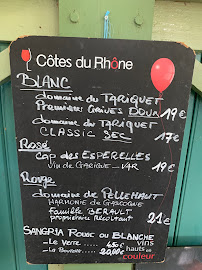 Côtes du Rhône
BLANC
domaine du TARIQUET
Premières Grives DOUX 19€
domaine du TARIQUET
CLASSIC SEC 17€
Rosé
Cap des ESPERELLES
Vin de Garigue - VAR 19€
Rouge
domaine de PELLEHAUT
HARMONIE de GASCOGNE
Famille BERAULT
propriétaire Récoltant 21€
SANGRIA Rouge ou BLANCHE
- Le Verre 4,50€
- La Bouteille 20,00€
vins
hauts en
couleur